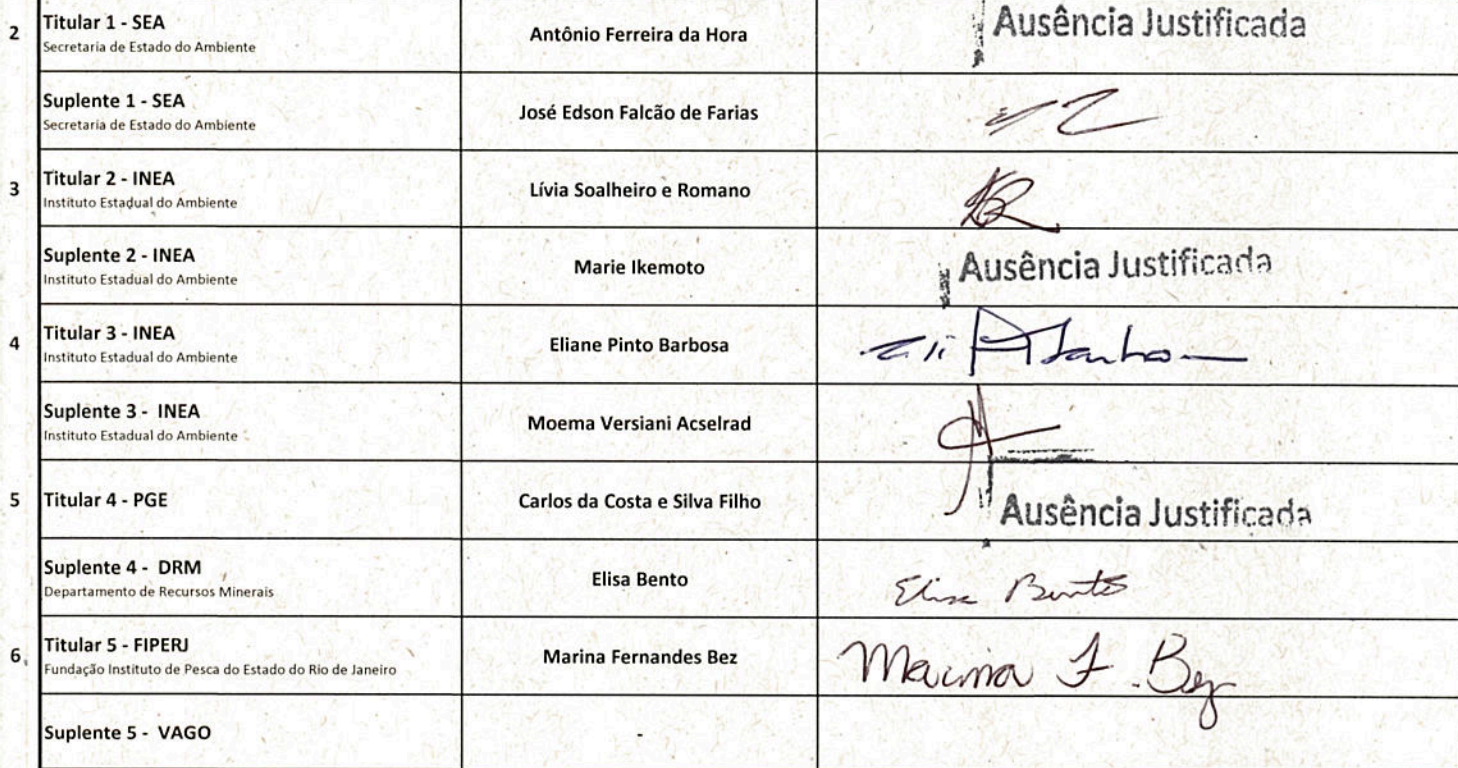 2
Titular 1 - SEA
Secretaria de Estado do Ambiente
Antônio Ferreira da Hora
Ausência Justificada
Suplente 1 - SEA
Secretaria de Estado do Ambiente
José Edson Falcão de Farias
3
Titular 2 - INEA
Instituto Estadual do Ambiente
Lívia Soalheiro e Romano
Suplente 2 - INEA
Instituto Estadual do Ambiente
Marie Ikemoto
Ausência Justificada
4
Titular 3 - INEA
Instituto Estadual do Ambiente
Eliane Pinto Barbosa
Suplente 3 - INEA
Instituto Estadual do Ambiente
Moema Versiani Acselrad
5
Titular 4 - PGE
Carlos da Costa e Silva Filho
Ausência Justificada
Suplente 4 - DRM
Departamento de Recursos Minerais
Elisa Bento
Elisa Bento
6
Titular 5 - FIPERJ
Fundação Instituto de Pesca do Estado do Rio de Janeiro
Marina Fernandes Bez
Marina F. Bez
Suplente 5 - VAGO
-